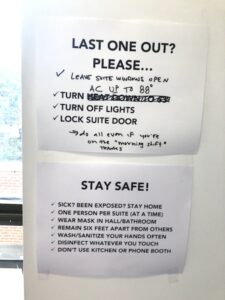 LAST ONE OUT?
PLEASE...
✓ LEAVE SUITE WINDOWS OPEN
AC UP TO 88°
✓TURN HEAT DOWN TO 63
✓TURN OFF LIGHTS
✓LOCK SUITE DOOR
→ do all even if you're
on the "morning shift"
THANKS
STAY SAFE!
✓ SICK? BEEN EXPOSED? STAY HOME
✓ ONE PERSON PER SUITE (AT A TIME)
✓ WEAR MASK IN HALL/BATHROOM
✓ REMAIN SIX FEET APART FROM OTHERS
✓ WASH/SANITIZE YOUR HANDS OFTEN
✓ DISINFECT WHATEVER YOU TOUCH
✓ DON'T USE KITCHEN OR PHONE BOOTH